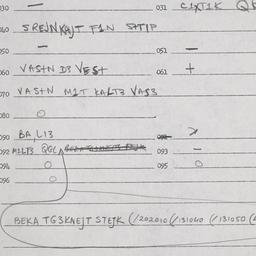 030 — 031 C1XT1K Q
040 SREJNKAJT F1N SHTIP
050 — 051 —
060 VASTN D3 VEST 061 +
070 VASTN M1T KALT3 VAS3
080 O
090 BA,L13
092 M1LT3 QGL 093 —
094 O 095 O
096 O
BEKA TG3KNEJT STEJK (/202010 (/131040 (/131050 (